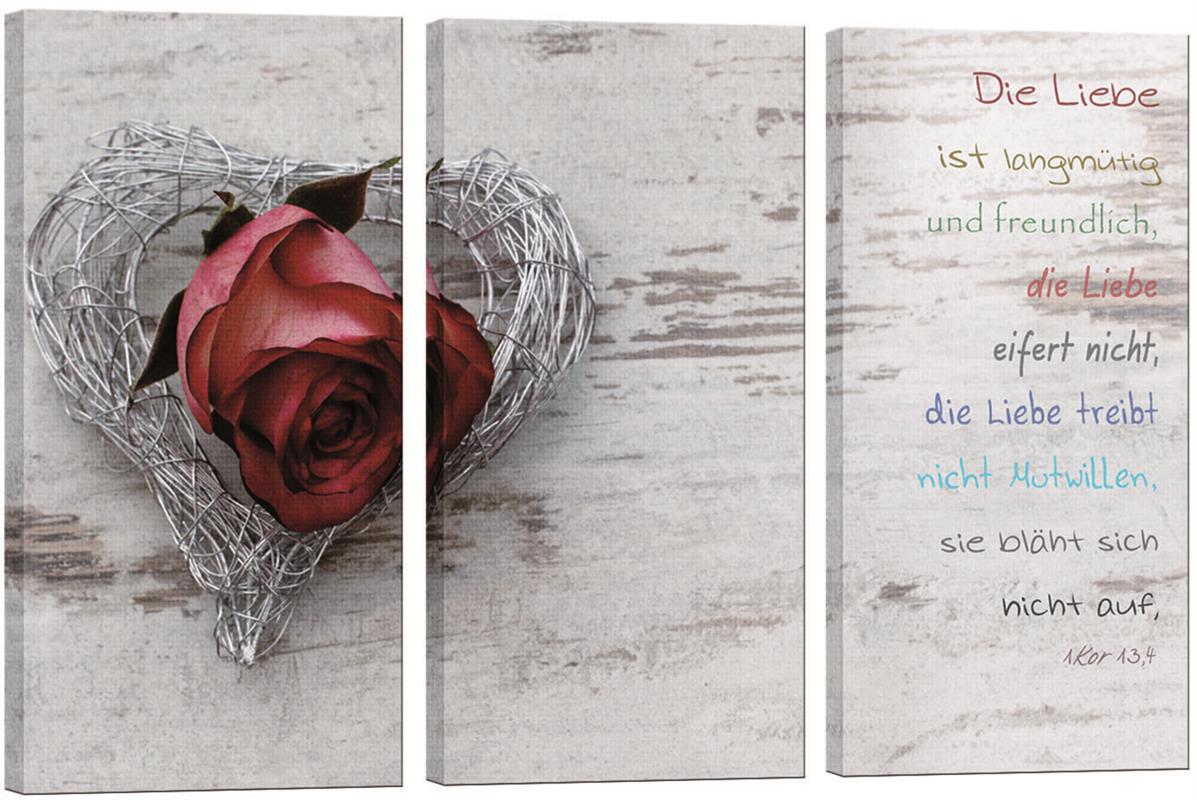 Die Liebe
ist langmütig
und freundlich,
die Liebe
eifert nicht,
die Liebe treibt
nicht Mutwillen,
sie bläht sich
nicht auf,
1Kor 13,4